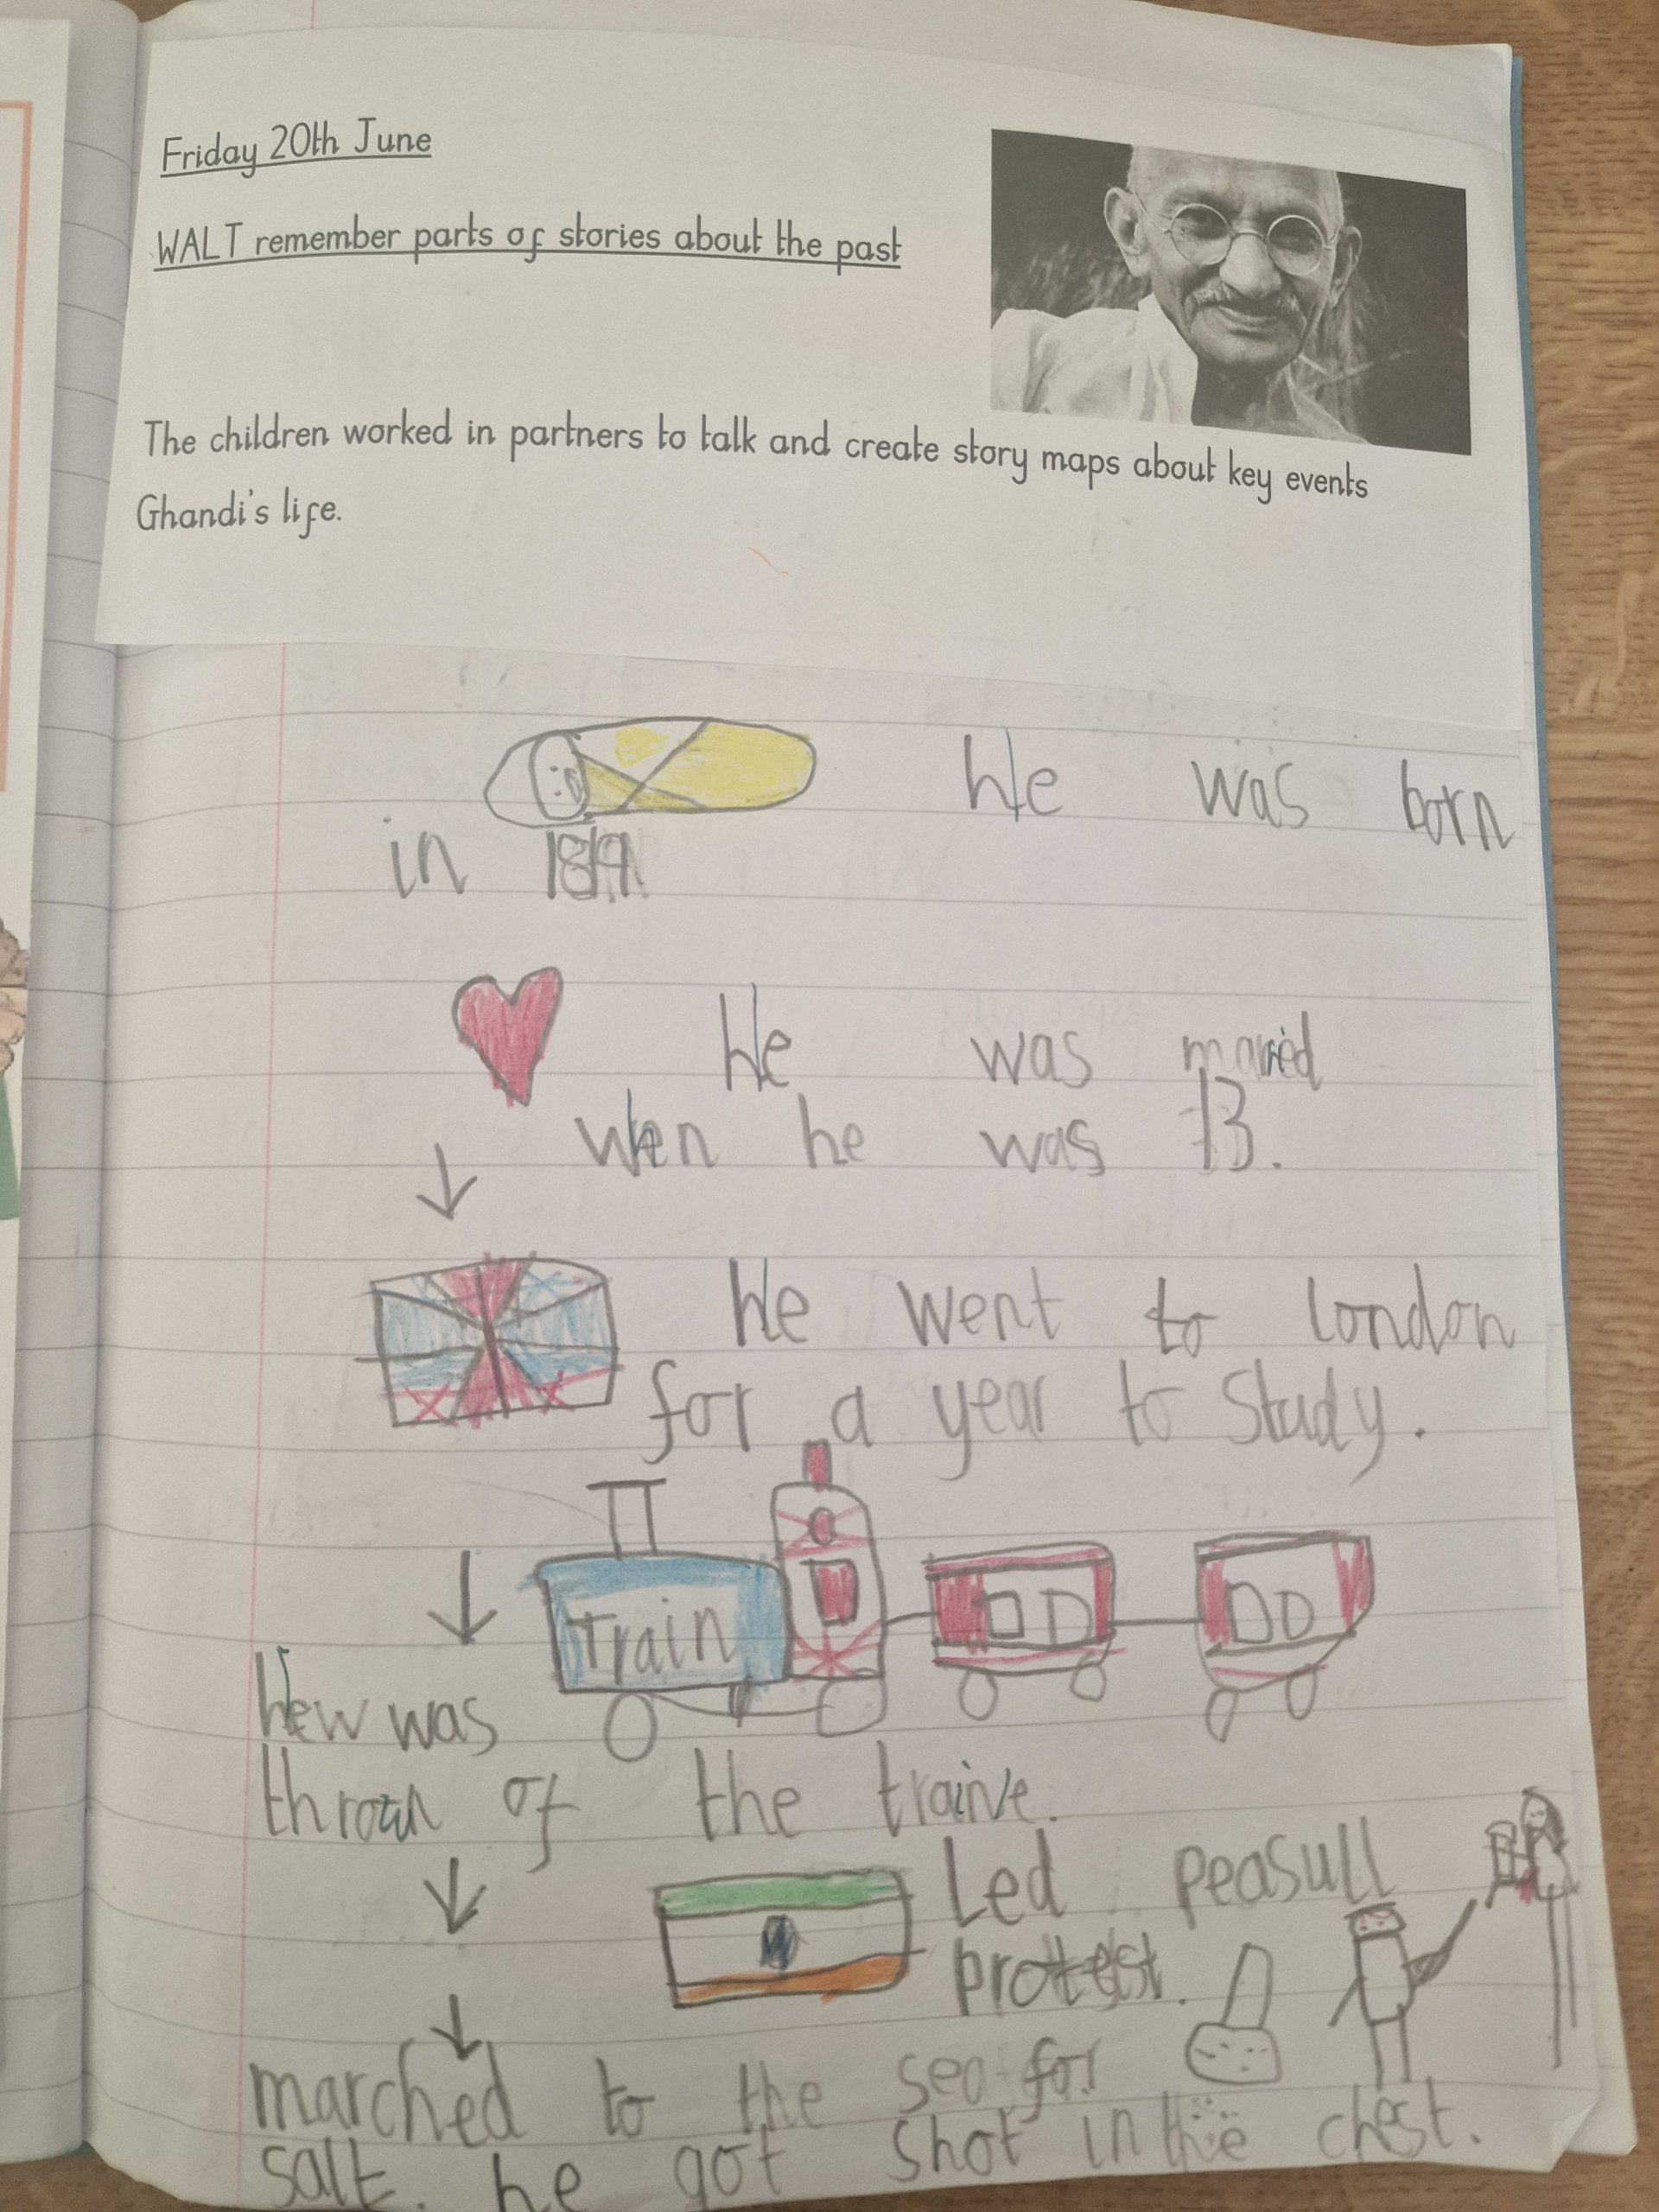 Friday 20th June
WALT remember parts of stories about the past
The children worked in partners to talk and create story maps about key events
Ghandi's life.
He was born
in
He was maried
when he was 13.
He went to london
for a year to Study.
Train
Hew was
thrown of the traine.
Led peasull
protest.
marched to the sea for
salt. he got shot in the chest.